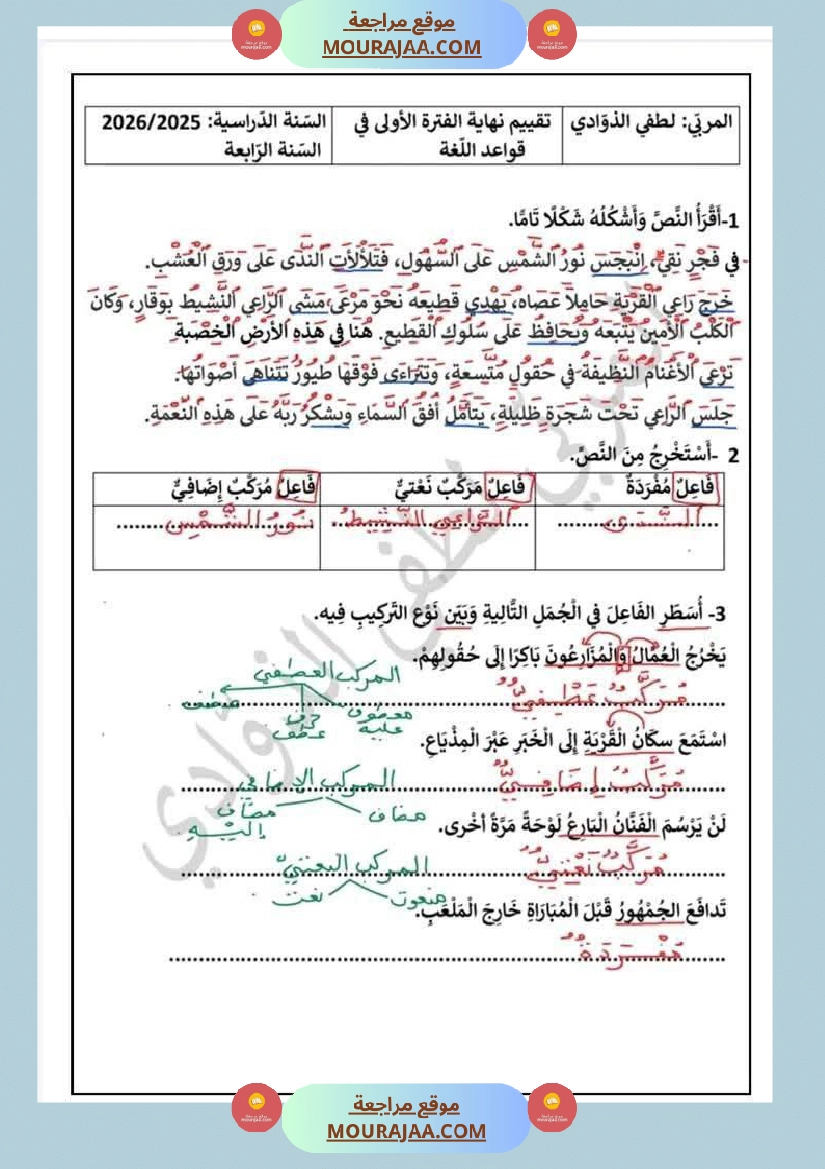 موقع مراجعة
MOURAJAA.COM
المربّي: لطفي الذوّادي
تقييم نهاية الفترة الأولى في قواعد اللّغة
السّنة الدّراسية: 2026/2025
السّنة الرّابعة
1-أَقْرَأُ النَّصَّ وَأَشْكُلُهُ شَكْلًا تَامًّا.
في فَجْرٍ نَقِيٍّ، اِنْبَجَسَ نُورُ الشَّمْسِ عَلَى السُّهُولِ، فَتَلَأْلَأَتِ النَّدَى عَلَى وَرَقِ الْعُشْبِ.
خَرَجَ رَاعِي الْقَرْيَةِ حَامِلًا عَصَاهُ، يَهْدِي قَطِيعَهُ نَحْوَ مَرْعًى، مَشَى الرَّاعِي النَّشِيطُ بِوَقَارٍ، وَكَانَ
الْكَلْبُ الْأَمِينُ يَتْبَعُهُ وَيُحَافِظُ عَلَى سُلُوكِ الْقَطِيعِ. هُنَا فِي هَذِهِ الْأَرْضِ الْخَصْبَةِ
تَرْعَى الْأَغْنَامُ النَّظِيفَةُ فِي حُقُولٍ مُتَّسِعَةٍ، وَتَتَرَاءَى فَوْقَهَا طُيُورٌ تَتَنَاهَى أَصْوَاتُهَا.
جَلَسَ الرَّاعِي تَحْتَ شَجَرَةٍ ظَلِيلَةٍ، يَتَأَمَّلُ أُفُقَ السَّمَاءِ وَيَشْكُرُ رَبَّهُ عَلَى هَذِهِ النِّعْمَةِ.
2 -أَسْتَخْرِجُ مِنَ النَّصِّ.
فَاعِلٌ مُفْرَدَةٌ
فَاعِلٌ مَرَكَّبٌ نَعْتيٌّ
فَاعِلٌ مُرَكَّبٌ إِضَافِيٌّ
النَّدَى
الرَّاعِي النَّشِيطُ
نُورُ الشَّمْسِ
3- أُسَطِّرِ الفَاعِلَ فِي الْجُمَلِ التَّالِيةِ وَبَيَنِ نَوْعَ التَّركِيبِ فِيه.
يَخْرُجُ الْعُمَّالُ وَالْمُزَارِعُونَ بَاكِرًا إِلَى حُقُولِهِمْ.
المركب العطفي
مُرَكَّبٌ عَطْفِيٌّ
معطوف عليه
حرف عطف
معطوف
اسْتَمَعَ سكَانُ الْقَرْيَةِ إِلَى الْخَبَرِ عَبْرَ الْمِذْيَاعِ.
المركب الإضافي
مُرَكَّبٌ إِضَافِيٌّ
مضاف
مضاف إليه
لَنْ يَرْسُمَ الْفَنَّانُ الْبَارِعُ لَوْحَةً مَرَّةً أُخْرى.
المركب النعتي
مُرَكَّبٌ نَعْتِيٌّ
منعوت
نعت
تَدافَعَ الجُمْهُورُ قَبْلَ الْمُبَارَاةِ خَارِجَ الْمَلْعَبِ.
مُفْرَدَةٌ
لطفي الذوّادي
موقع مراجعة
MOURAJAA.COM